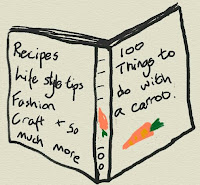 Recipes
Life style tips
Fashion
Craft + So
much more
100
100
Things to
do with
a carrot.